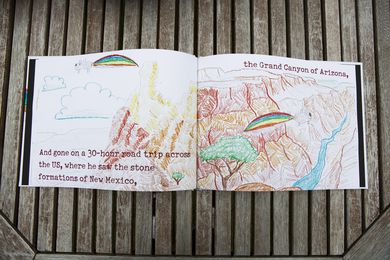 And gone on a 30-hour road trip across
the US, where he saw the stone
formations of New Mexico,
the Grand Canyon of Arizona,